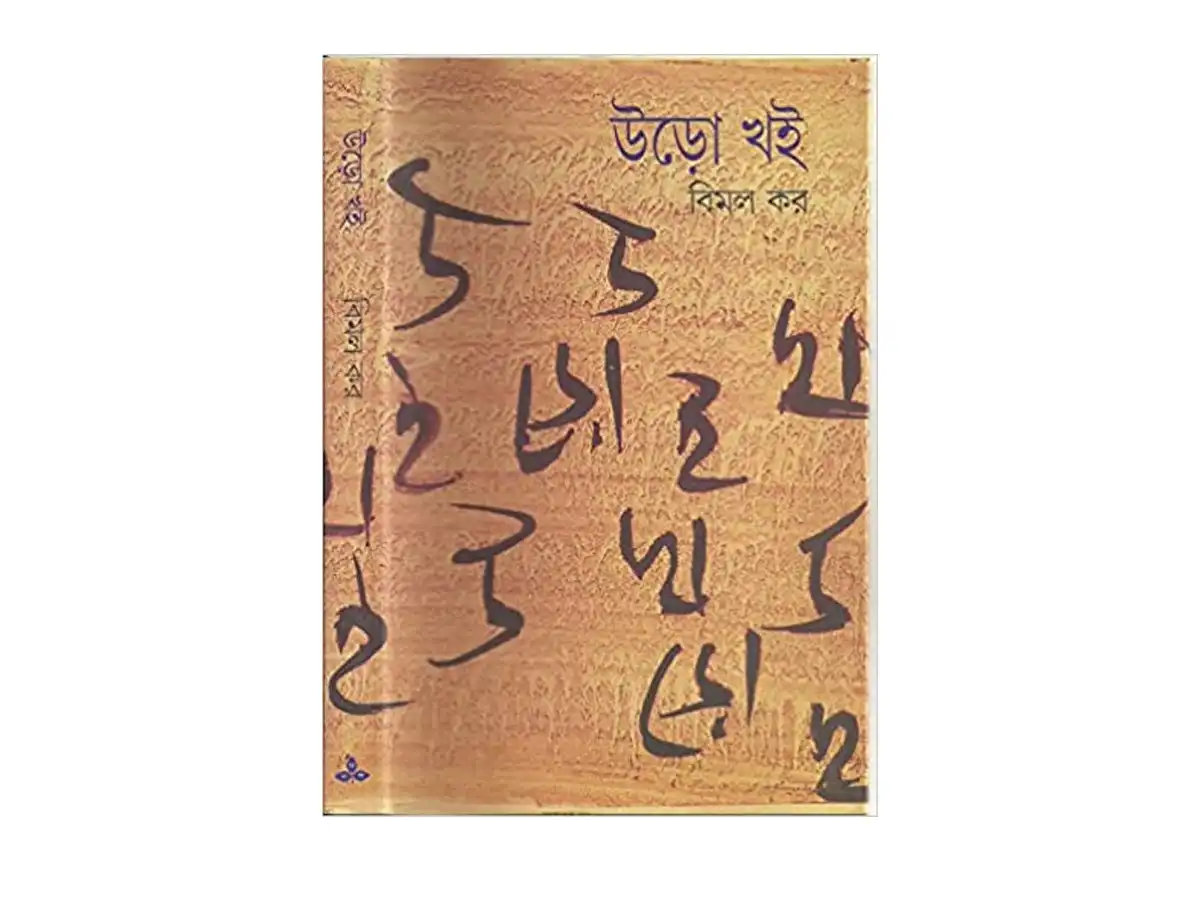 উড়ো খই
বিমল কর
উড়ো খই বিমল কর
উ
উ
ড়ো
ই
খ
ই
খ
উ
খ
উ
ই
ড়ো
ই